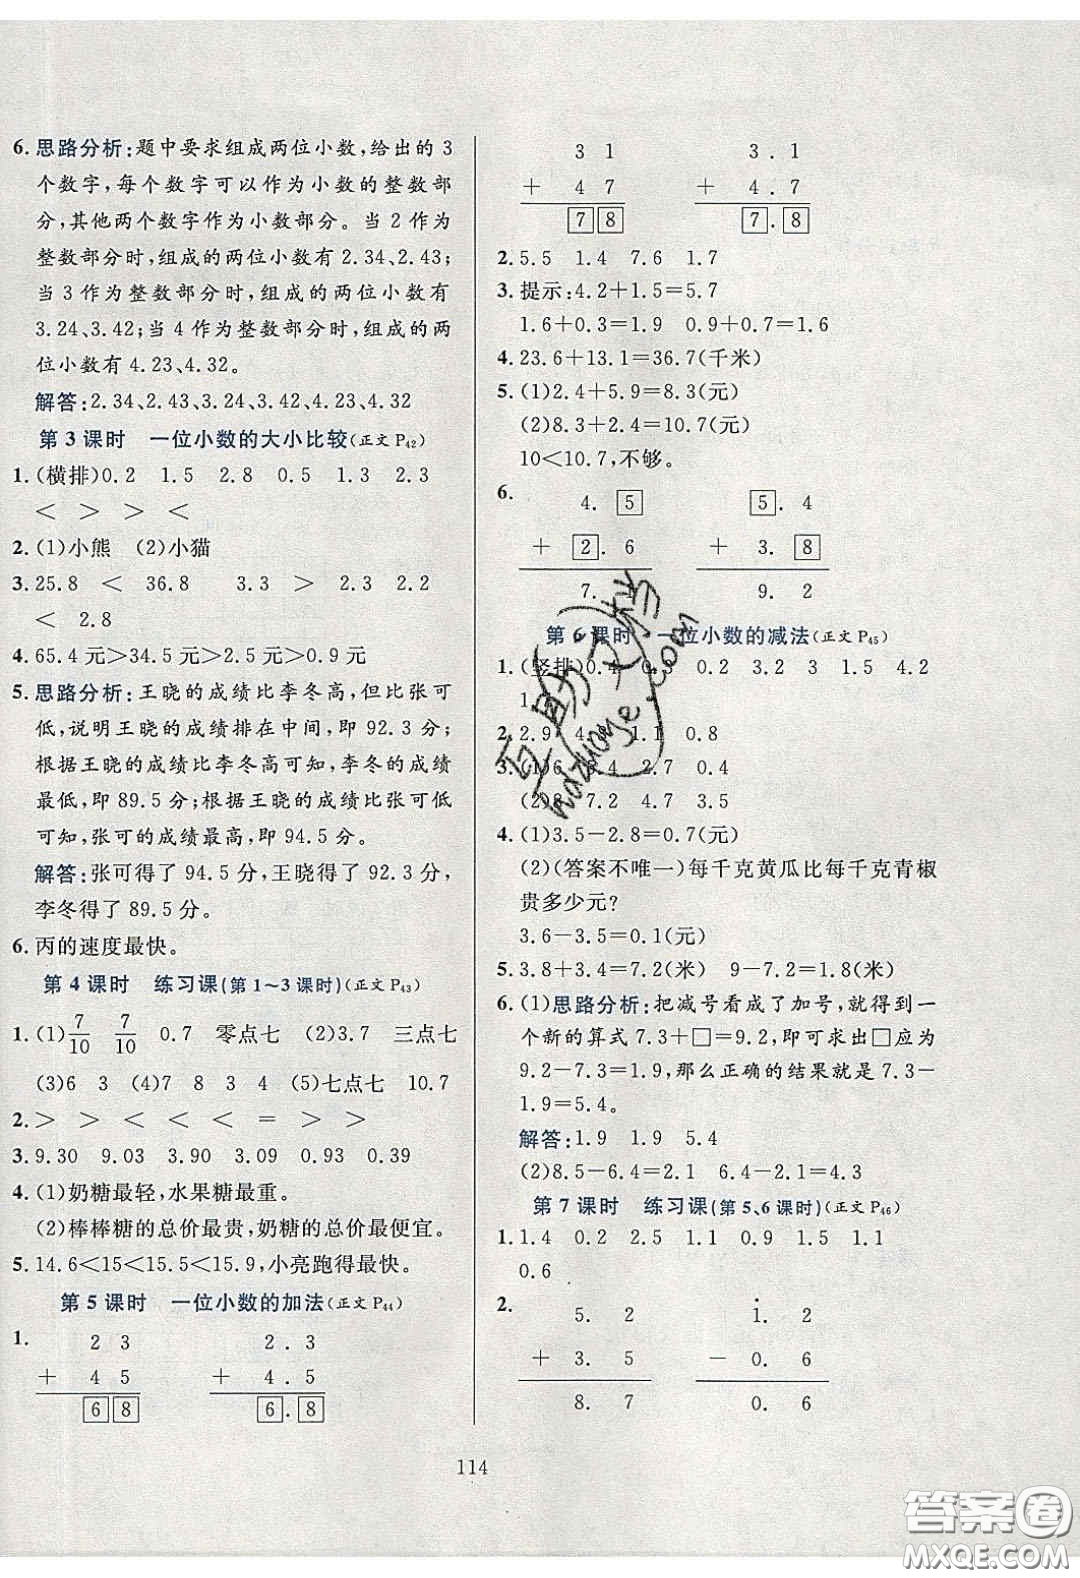 6. 思路分析:题中要求组成两位小数,给出的 3
个数字,每个数字可以作为小数的整数部
分,其他两个数字作为小数部分。当 2 作为
整数部分时,组成的两位小数有 2.34、2.43;
当 3 作为整数部分时,组成的两位小数有
3.24、3.42;当 4 作为整数部分时,组成的两
位小数有 4.23、4.32。
解答:2.34、2.43、3.24、3.42、4.23、4.32
第 3 课时 一位小数的大小比较(正文 P42)
1. (横排)0.2 1.5 2.8 0.5 1.3 2.3
< > > <
2. (1)小熊 (2)小猫
3. 25.8 < 36.8 3.3 > 2.3 2.2
< 2.8
4. 65.4 元>34.5 元>2.5 元>0.9 元
5. 思路分析:王晓的成绩比李冬高,但比张可
低,说明王晓的成绩排在中间,即 92.3 分;
根据王晓的成绩比李冬高可知,李冬的成绩
最低,即 89.5 分;根据王晓的成绩比张可低
可知,张可的成绩最高,即 94.5 分。
解答:张可得了 94.5 分,王晓得了 92.3 分,
李冬得了 89.5 分。
6. 丙的速度最快。
第 4 课时 练习课(第 1~3 课时)(正文 P43)
1. (1)7/10 7/10 0.7 零点七 (2)3.7 三点七
(3)6 3 (4)7 8 3 4 (5)七点七 10.7
2. > > < < < = < >
3. 9.30 9.03 3.90 3.09 0.93 0.39
4. (1)奶糖最轻,水果糖最重。
(2)棒棒糖的总价最贵,奶糖的总价最便宜。
5. 14.6<15<15.5<15.9,小亮跑得最快。
第 5 课时 一位小数的加法(正文 P44)
1. 2 3 2.3
+ 4 5 + 4.5
6 8 6.8
3 1 3.1
+ 4 7 + 4.7
7 8 7.8
2. 5.5 1.4 7.6 1.7
3. 提示:4.2+1.5=5.7
1.6+0.3=1.9 0.9+0.7=1.6
4. 23.6+13.1=36.7(千米)
5. (1)2.4+5.9=8.3(元)
(2)8.3+2.4=10.7(元)
10<10.7,不够。
6. 4. 5 5. 4
+ 2. 6 + 3. 8
7. 1 9. 2
第 6 课时 一位小数的减法(正文 P45)
1. (竖排)0.4 0.3 0.2 3.2 3 1.5 4.2
2. 2.9 1.1 0.8
3. (1)6 2.7 0.4
7.2 4.7 3.5
4. (1)3.5-2.8=0.7(元)
(2)(答案不唯一)每千克黄瓜比每千克青椒
贵多少元?
3.6-3.5=0.1(元)
5. 3.8+3.4=7.2(米) 9-7.2=1.8(米)
6. (1)思路分析:把减号看成了加号,就得到一
个新的算式 7.3+□=9.2,即可求出□应为
9.2-7.3=1.9,那么正确的结果就是 7.3-
1.9=5.4。
解答:1.9 1.9 5.4
(2)8.5-6.4=2.1 6.4-2.1=4.3
第 7 课时 练习课(第 5、6 课时)(正文 P46)
1. 1.4 0.2 2.5 1.1 0.9 1.5 1.1
0.6
2. 5. 2 1. 2
+ 3. 5 - 0. 6
8. 7 0. 6
114
答案圈
MXQE.COM